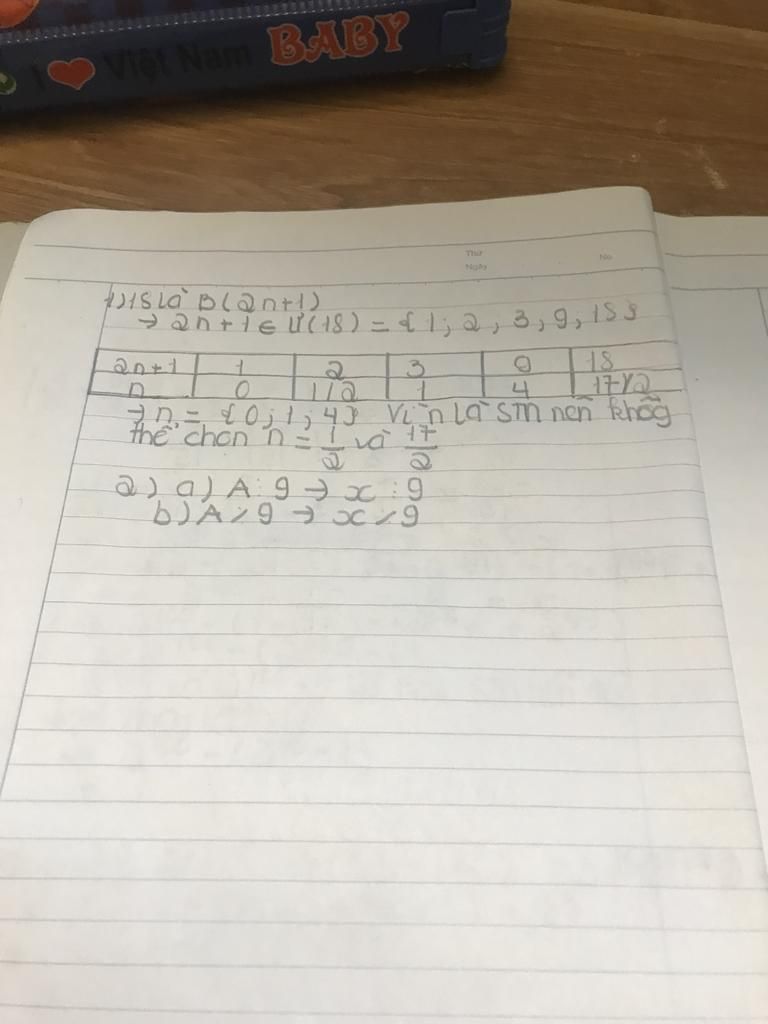 I ❤ Việt Nam BABY
Thứ
Ngày
No
1) 18 là B(2n+1)
→ 2n+1 ∈ Ư(18) = {1; 2, 3, 9, 18}
2n+1 | 1 | 2 | 3 | 9 | 18
n | 0 | 1/2 | 1 | 4 | 17/2
→ n = {0; 1; 4} Vì n là STN nên khôg
thể chọn n = 1/2 và 17/2
2) a) A ⋮ 9 → x ⋮ 9
b) A ⋮̸ 9 → x ⋮̸ 9